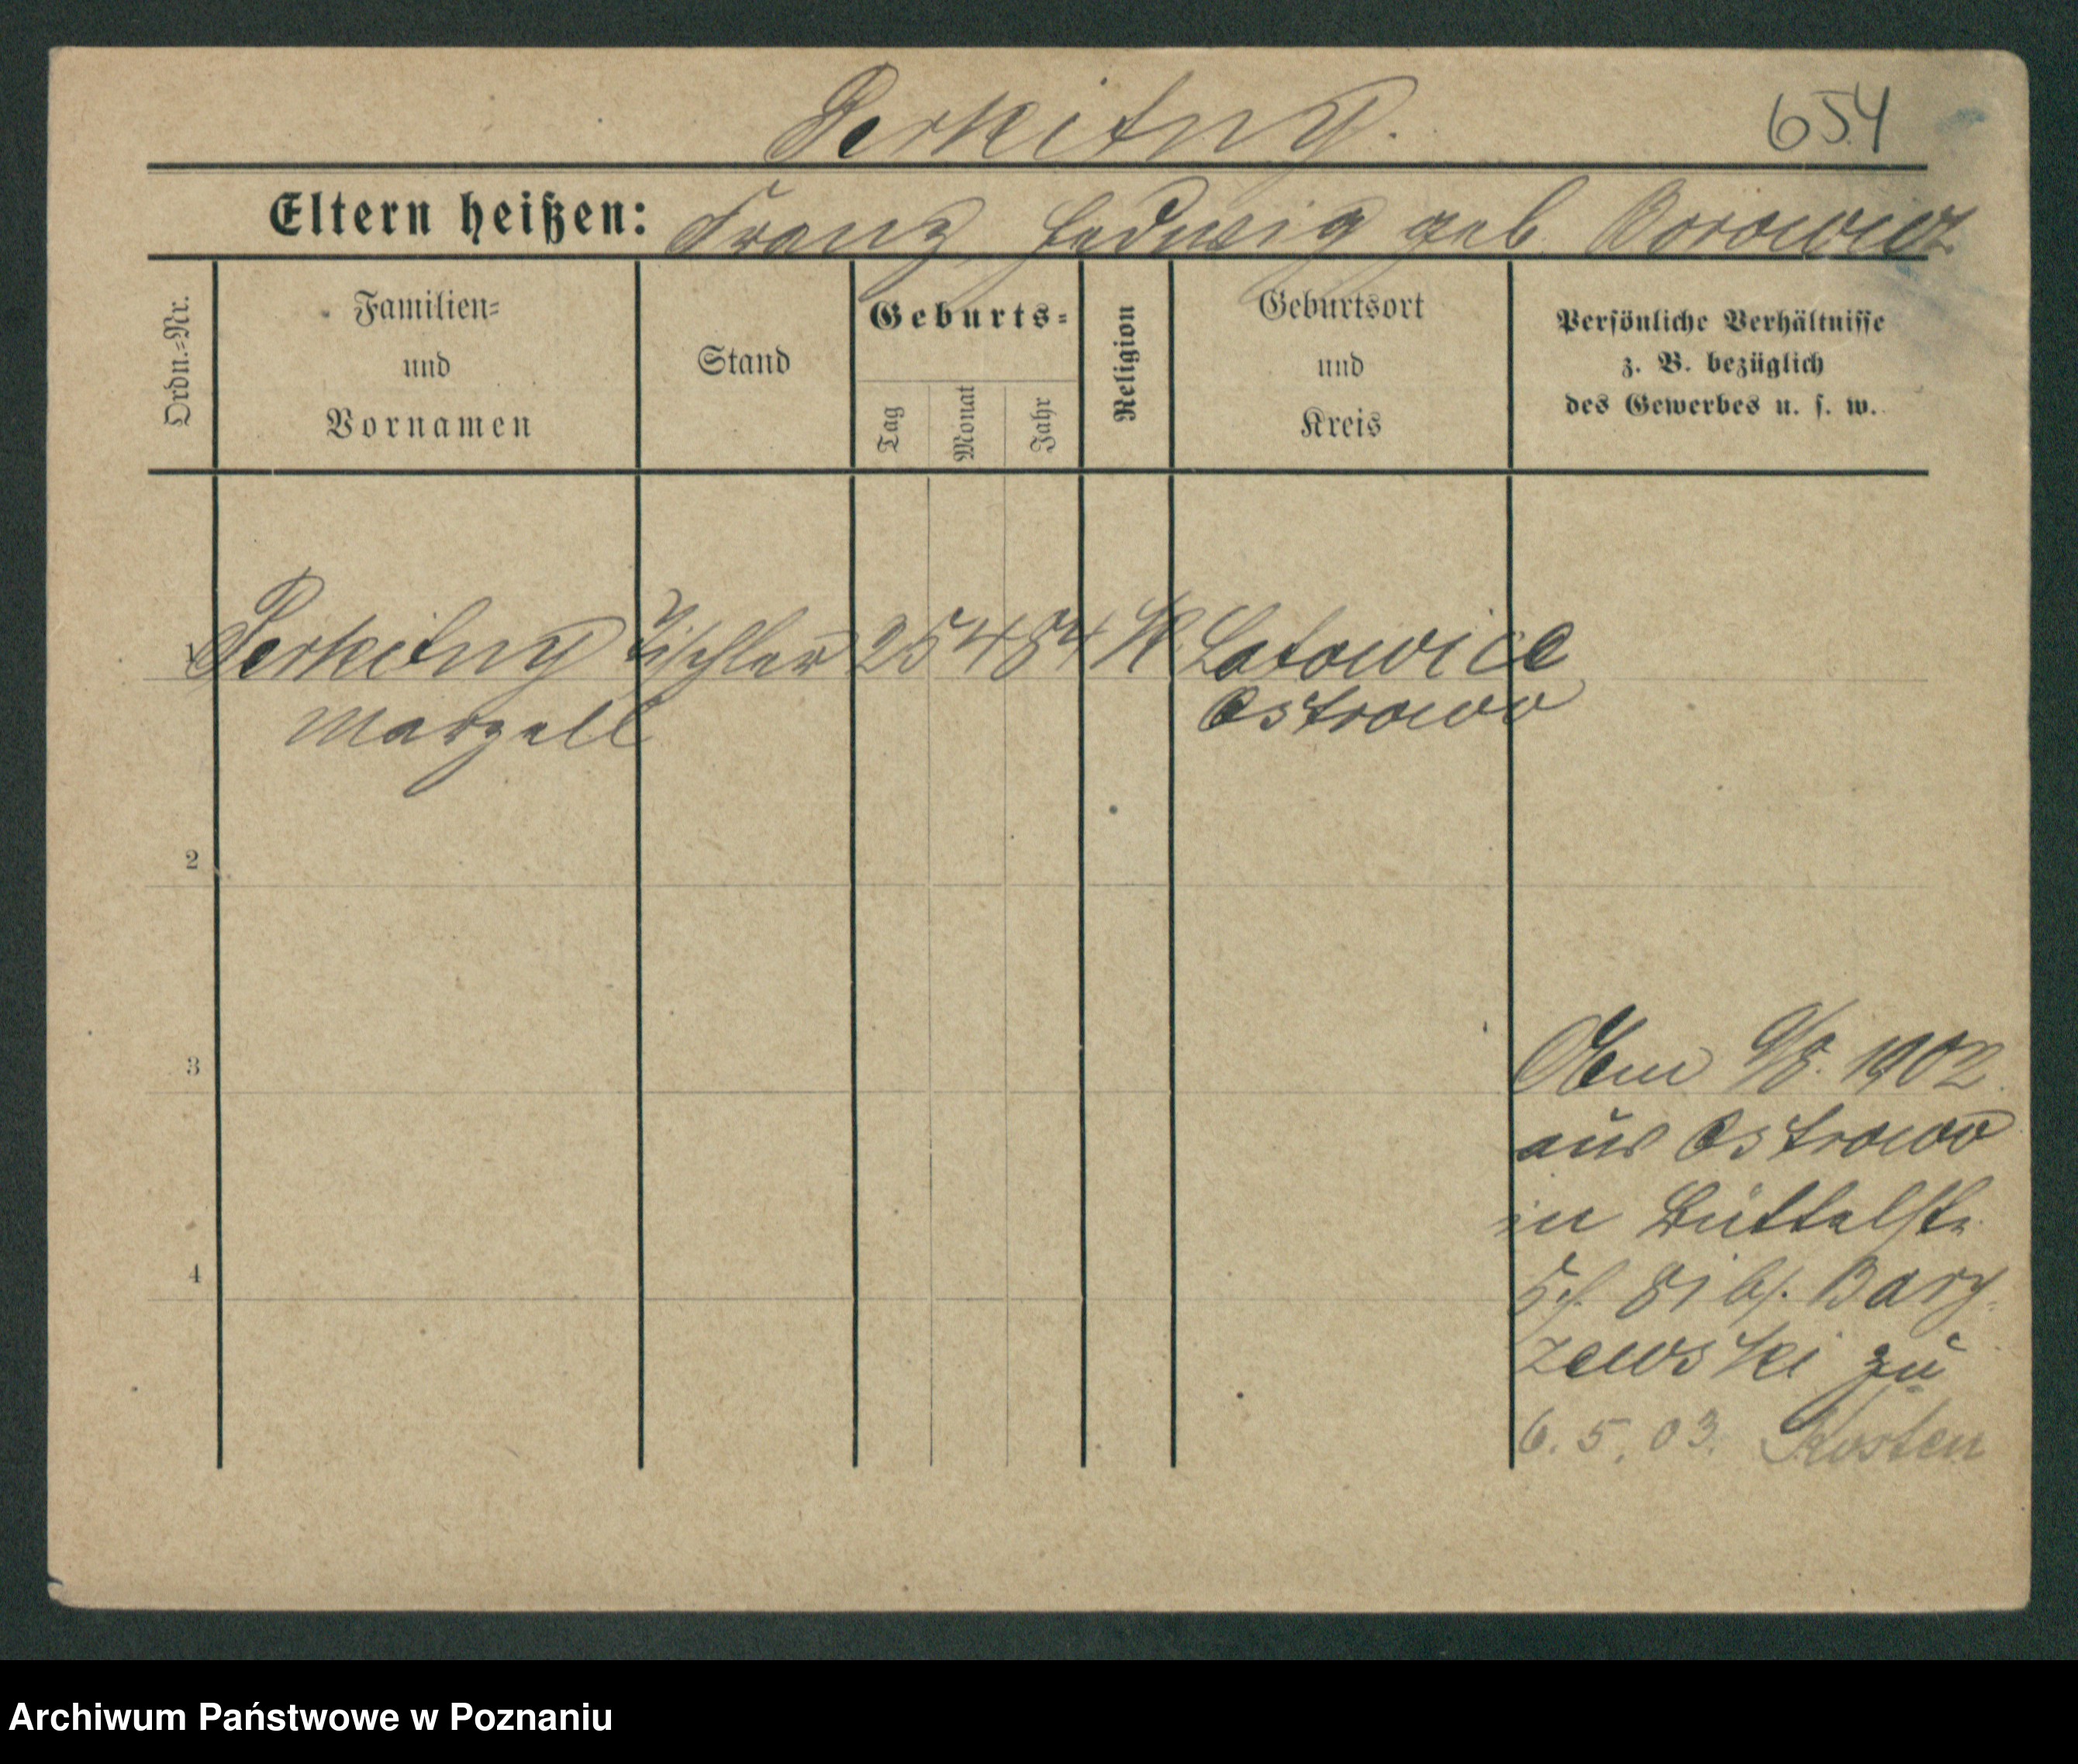 Perkitny.
654
Eltern heißen: Franz Hedwig geb. Borowicz
Ordn.=Nr.
Familien=
und
Vornamen
Stand
Geburts=
Tag
Monat
Jahr
Religion
Geburtsort
und
Kreis
Persönliche Verhältnisse
z. B. bezüglich
des Gewerbes u. s. w.
Perkitny Tischler 25 4 84 K Latowice
Marzell Ostrowo
2
3
4
9/8. 1902
aus Ostrowo
in Büttelstr
81 b/. Barz-
zewski zu
6. 5. 03. Kosten
Archiwum Państwowe w Poznaniu